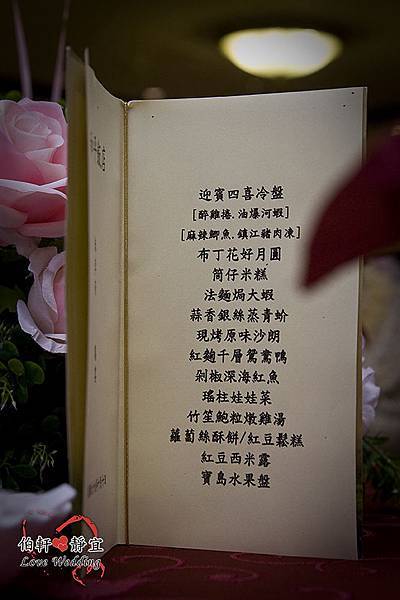 迎賓四喜冷盤
[醉雞捲.油爆河蝦]
[麻辣鯽魚.鎮江豬肉凍]
布丁花好月圓
筒仔米糕
法麵焗大蝦
蒜香銀絲蒸青蚧
現烤原味沙朗
紅麴千層鴛鴦鴨
剁椒深海紅魚
瑤柱娃娃菜
竹笙鮑粒燉雞湯
蘿蔔絲酥餅/紅豆鬆糕
紅豆西米露
寶島水果盤
伯軒 靜宜
Love Wedding